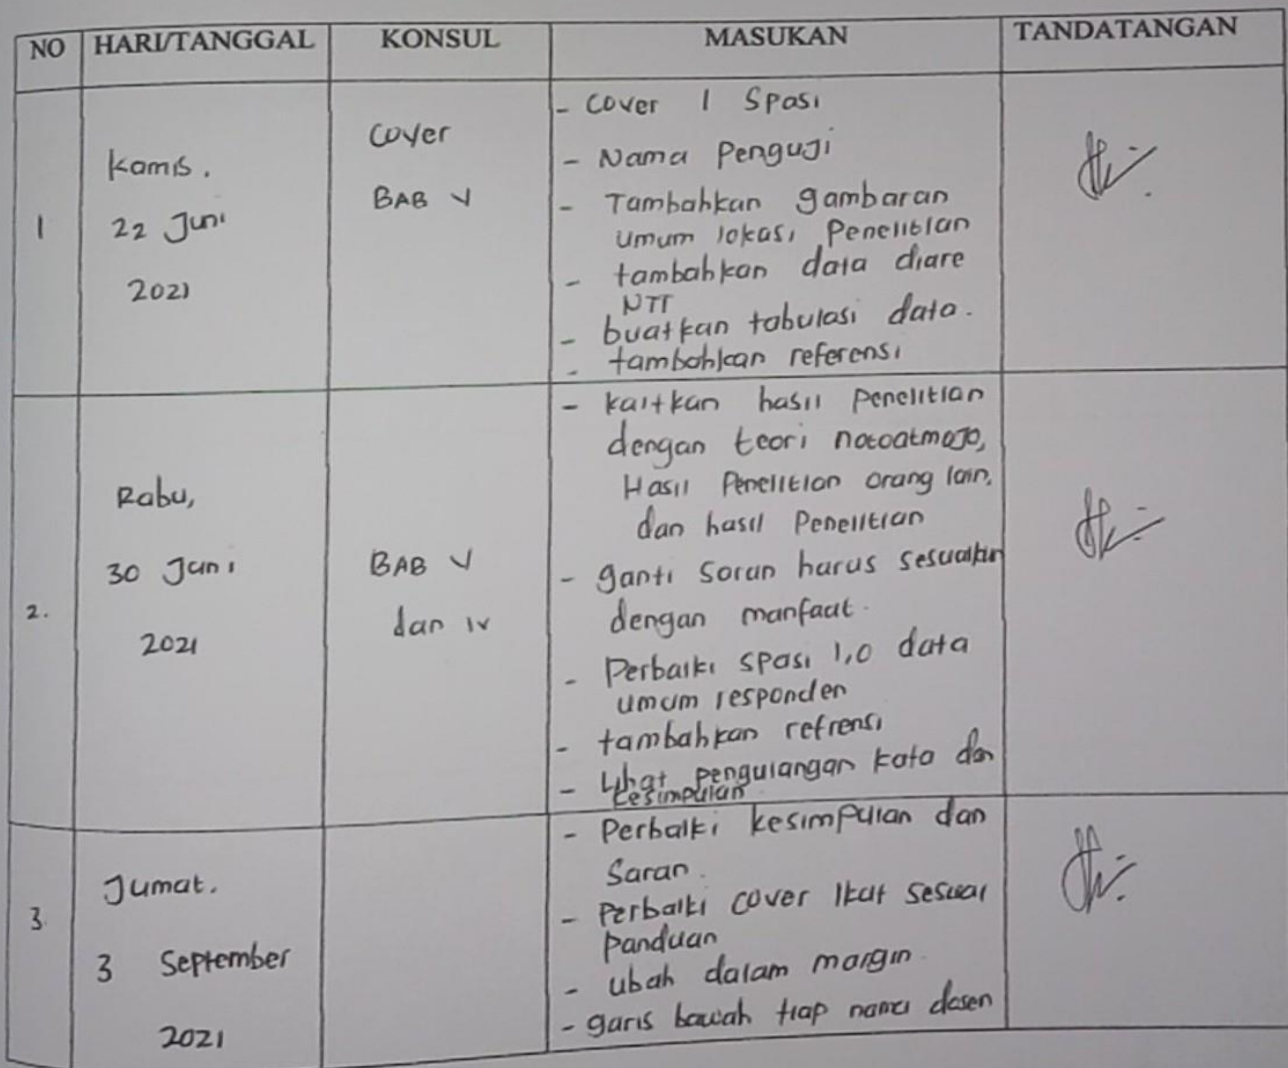 NO HARI/TANGGAL KONSUL MASUKAN TANDATANGAN
1
Kamis.
22 Juni
2021
Cover
BAB V
- Cover 1 Spasi
- Nama Penguji
- Tambahkan gambaran
umum lokasi Penelitian
- tambahkan data diare
NTT
- buatkan tabulasi data.
- tambahkan referensi
2.
Rabu,
30 Juni
2021
BAB V
dan IV
- kaitkan hasil Penelitian
dengan teori notoatmojo,
Hasil Penelitian orang lain,
dan hasil Penelitian
- ganti Saran harus sesuaikan
dengan manfaat.
- Perbaiki spasi 1,0 data
umum responden
- tambahkan refrensi
- Lihat pengulangan kata dan
kesimpulan
3.
Jumat.
3 September
2021
- Perbaiki kesimpulan dan
Saran.
- Perbaiki cover Ikut sesuai
Panduan
- ubah dalam margin.
- garis bawah tiap nama dosen